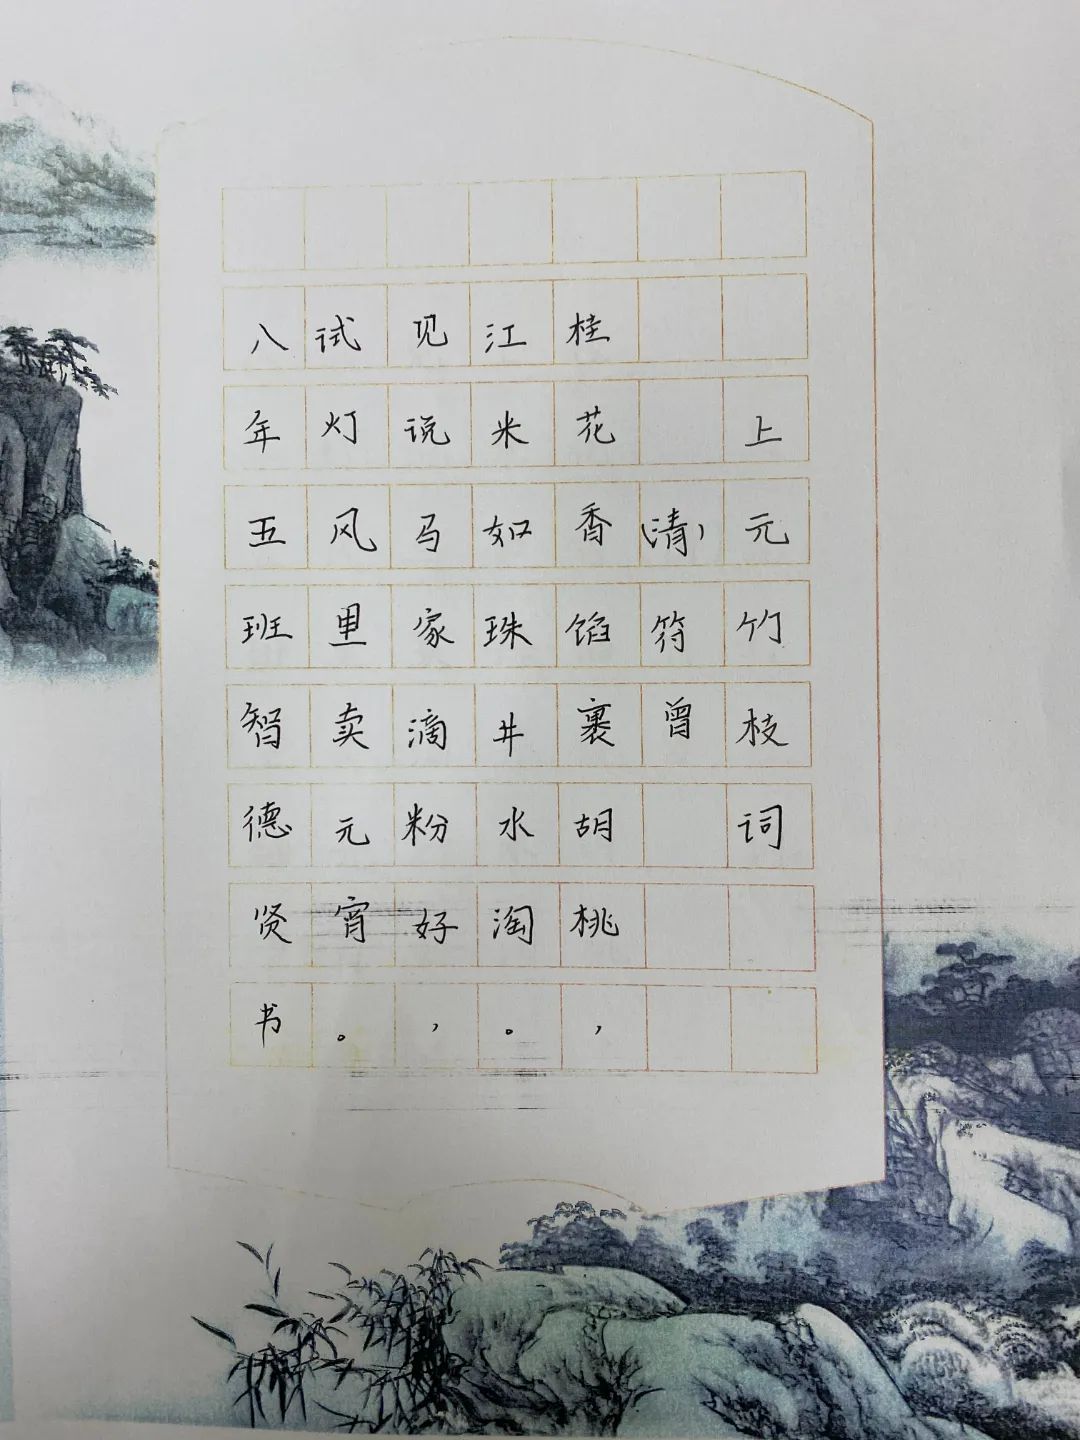 上元竹枝词
(清)符曾
桂花香馅裹胡桃，
江米如珠井水淘。
见说马家滴粉好，
试灯风里卖元宵。
八年五班智德贤书